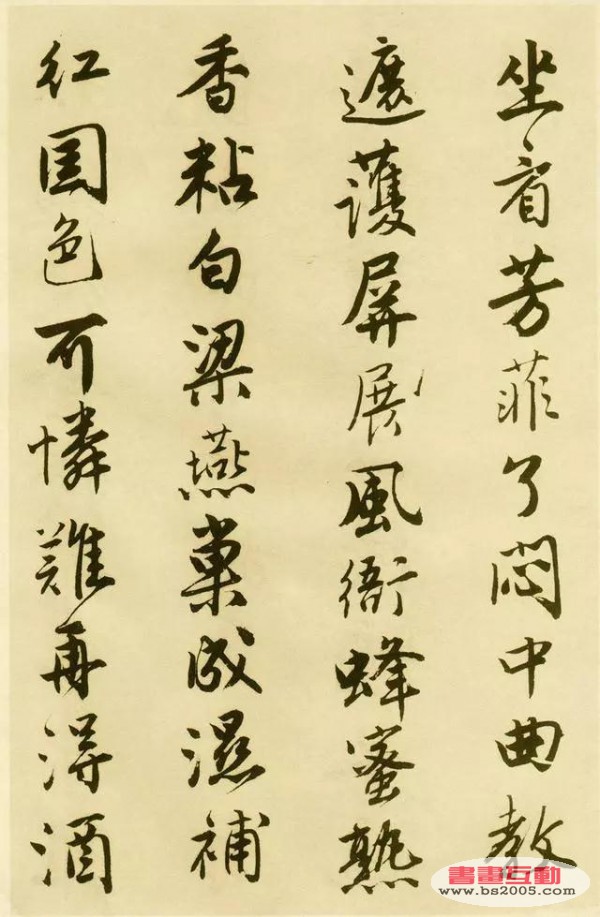 坐看芳菲了悶中曲教
遮護屏展風衙蜂蜜熟
香粘白梁燕巢成濕補
紅國色可憐難再得酒
書畫互動
www.bs2005.com